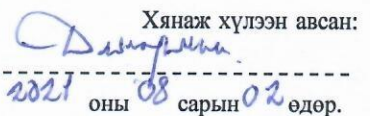 Хянаж хүлээн авсан:
2021 оны 08 сарын 02 өдөр.